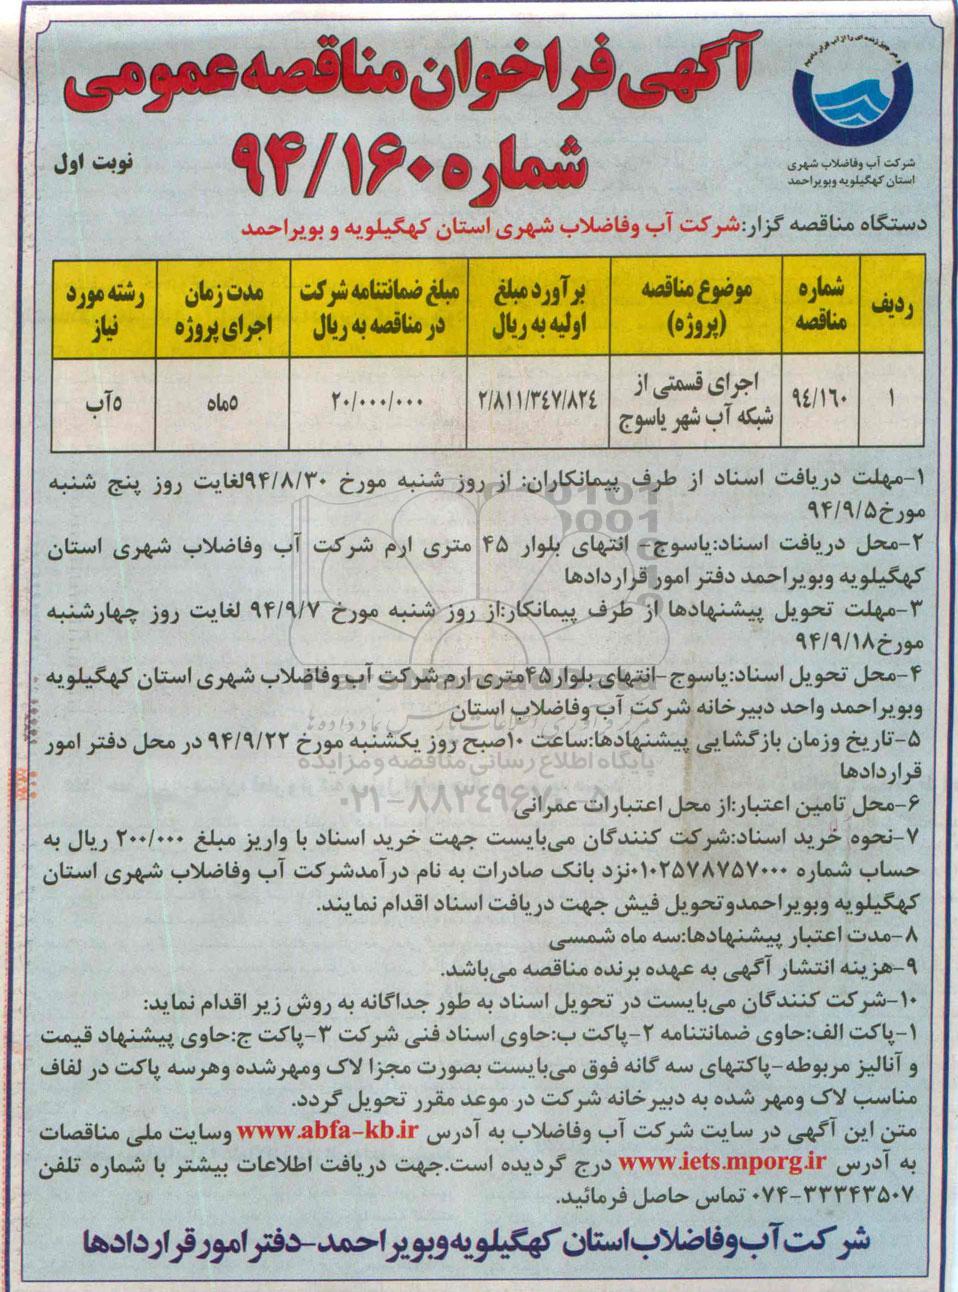 آگهی فراخوان مناقصه عمومی
شماره ۹۴/۱۶۰
نوبت اول
شرکت آب وفاضلاب شهری
استان کهگیلویه وبویراحمد
دستگاه مناقصه گزار:شرکت آب وفاضلاب شهری استان کهگیلویه و بویراحمد
ردیف
شماره مناقصه
موضوع مناقصه (پروژه)
برآورد مبلغ اولیه به ریال
مبلغ ضمانتنامه شرکت در مناقصه به ریال
مدت زمان اجرای پروژه
رشته مورد نیاز
۱
۹۴/۱۶۰
اجرای قسمتی از شبکه آب شهر یاسوج
۲/۸۱۱/۳۴۷/۸۲۴
۲۰/۰۰۰/۰۰۰
۵ماه
۵آب
۱-مهلت دریافت اسناد از طرف پیمانکاران: از روز شنبه مورخ ۹۴/۸/۳۰لغایت روز پنج شنبه
مورخ۹۴/۹/۵
۲-محل دریافت اسناد:یاسوج- انتهای بلوار ۴۵ متری ارم شرکت آب وفاضلاب شهری استان
کهگیلویه وبویراحمد دفتر امور قراردادها
۳-مهلت تحویل پیشنهادها از طرف پیمانکار:از روز شنبه مورخ ۹۴/۹/۷ لغایت روز چهارشنبه
مورخ۹۴/۹/۱۸
۴-محل تحویل اسناد:یاسوج-انتهای بلوار۴۵متری ارم شرکت آب وفاضلاب شهری استان کهگیلویه
وبویراحمد واحد دبیرخانه شرکت آب وفاضلاب استان
۵-تاریخ وزمان بازگشایی پیشنهادها:ساعت ۱۰صبح روز یکشنبه مورخ ۹۴/۹/۲۲ در محل دفتر امور
قراردادها
پایگاه اطلاع رسانی مناقصه و مزایده
۶-محل تامین اعتبار:از محل اعتبارات عمرانی
۰۲۱-۸۸۳۴۹۶۷۰-۵
۷-نحوه خرید اسناد:شرکت کنندگان می‌بایست جهت خرید اسناد با واریز مبلغ ۲۰۰/۰۰۰ ریال به
حساب شماره ۰۱۰۲۵۷۸۷۵۷۰۰۰نزد بانک صادرات به نام درآمدشرکت آب وفاضلاب شهری استان
کهگیلویه وبویراحمدوتحویل فیش جهت دریافت اسناد اقدام نمایند.
۸-مدت اعتبار پیشنهادها:سه ماه شمسی
۹-هزینه انتشار آگهی به عهده برنده مناقصه می‌باشد.
۱۰-شرکت کنندگان می‌بایست در تحویل اسناد به طور جداگانه به روش زیر اقدام نماید:
۱-پاکت الف:حاوی ضمانتنامه ۲-پاکت ب:حاوی اسناد فنی شرکت ۳-پاکت ج:حاوی پیشنهاد قیمت
و آنالیز مربوطه-پاکتهای سه گانه فوق می‌بایست بصورت مجزا لاک ومهرشده وهرسه پاکت در لفاف
مناسب لاک ومهر شده به دبیرخانه شرکت در موعد مقرر تحویل گردد.
متن این آگهی در سایت شرکت آب وفاضلاب به آدرس www.abfa-kb.ir وسایت ملی مناقصات
به آدرس www.iets.mporg.ir درج گردیده است.جهت دریافت اطلاعات بیشتر با شماره تلفن
۰۷۴-۳۳۳۴۳۵۰۷ تماس حاصل فرمائید.
شرکت آب وفاضلاب استان کهگیلویه وبویراحمد-دفتر امور قراردادها